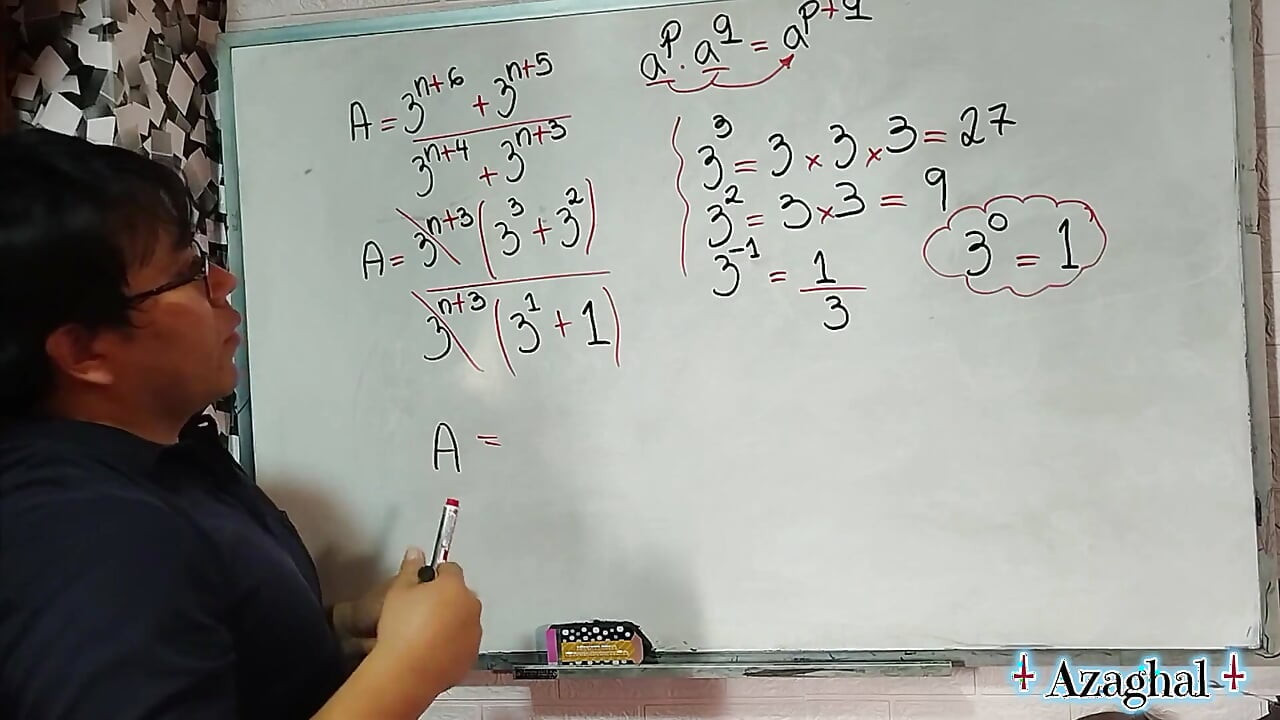 A = 3^{n+6} + 3^{n+5}
3^{n+4} + 3^{n+3}
A = 3^{n+3} (3^3 + 3^2)
3^{n+3} (3^1 + 1)
A =
a^p . a^q = a^{p+q}
3^3 = 3 × 3 × 3 = 27
3^2 = 3 × 3 = 9
3^{-1} = 1/3
3^0 = 1
Azaghal